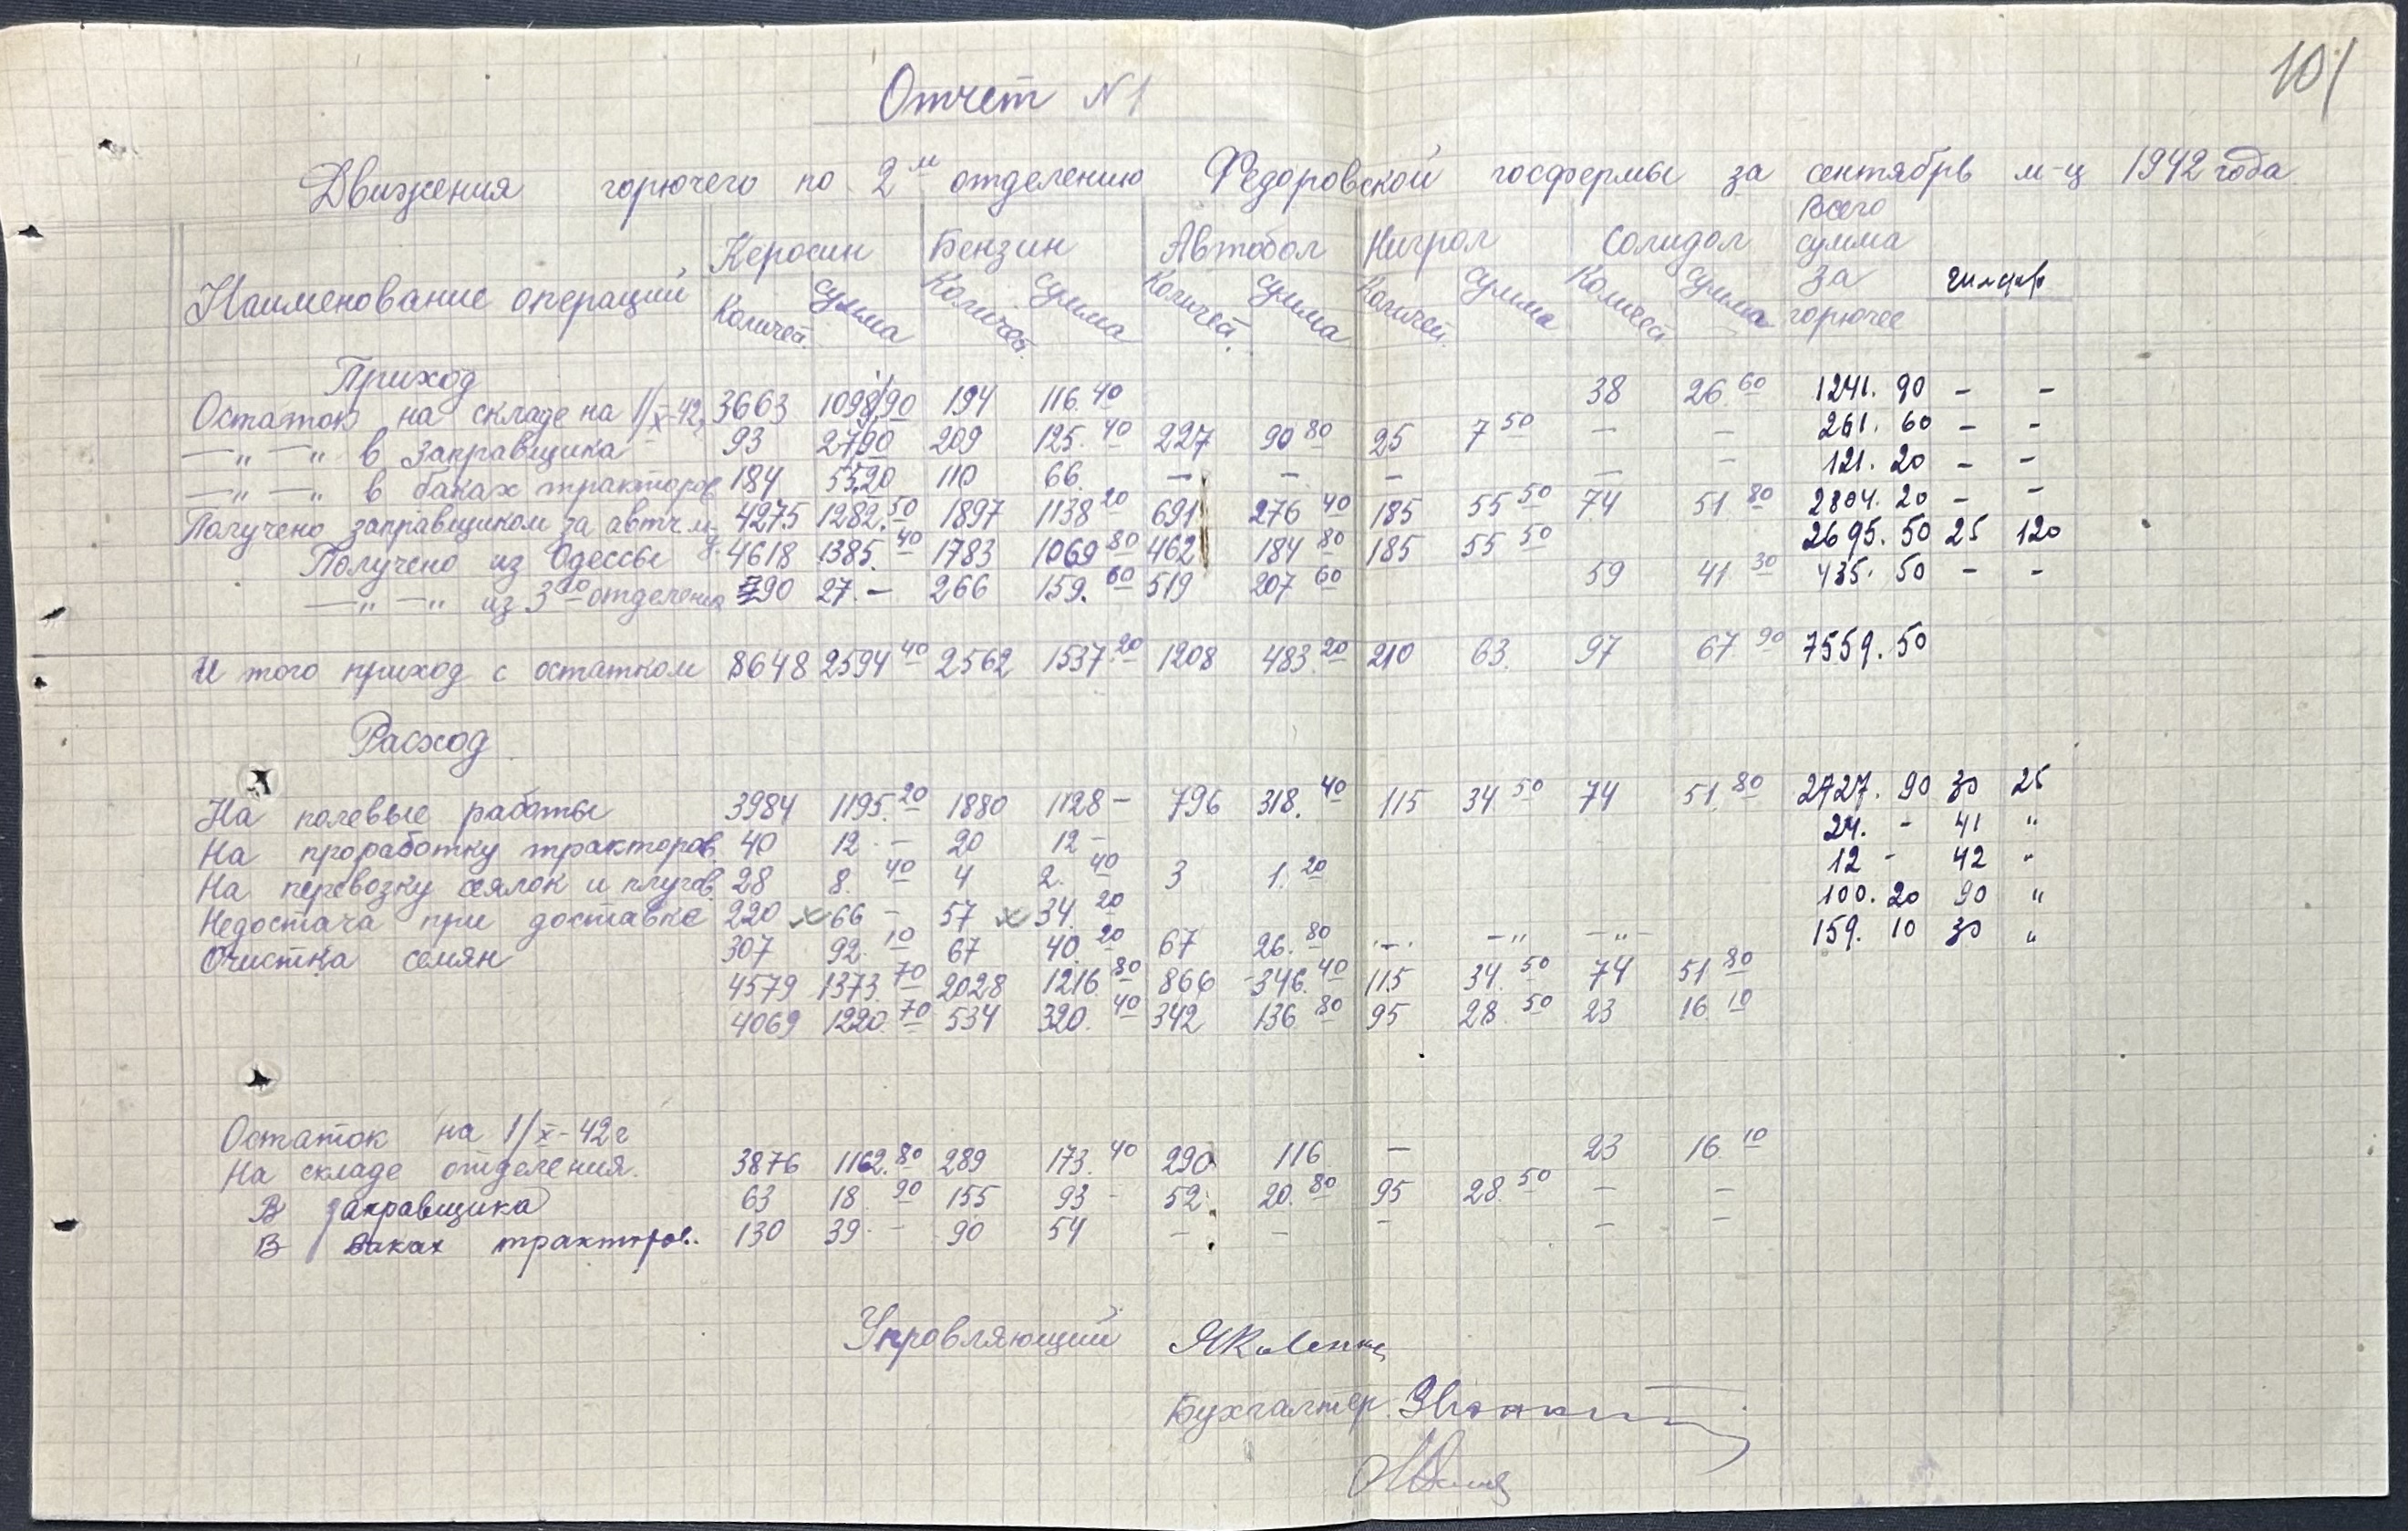 101
Отчет N1
Движения горючего по 2м отделению Федоровской госфермы за сентябрь м-ц 1942 года
Наименование операций Керосин Бензин Автобол Нигрол Солидол Всего сумма за горючее шифр
Количест. сумма Количест. сумма Количест. сумма Количест. сумма Количест сумма
Приход
Остаток на складе на 1/X-42г 3663 1098,90 194 116.40 38 26.60 1241.90 - -
—"— —" в заправщика 93 27,90 209 125.40 227 90 80 25 7 50 — — 261.60 - -
—"— —" в баках тракторов 184 55,20 110 66. — — — — — 121.20 - -
Получено заправщиком за 4275 1282.50 1897 1138 20 691 276 40 185 55 50 74 51 80 2804.20 - -
Получено из Одессы 4618 1385.40 1783 1069 80 462 184 80 185 55 50 2695.50 25 120
—"— —" из 3го отделения 90 27.— 266 159.60 519 207 60 59 41 30 435.50 - -
И того приход с остатком 8648 2594 40 2562 1537.20 1208 483.20 210 63. 97 67 90 7559.50
Расход
На полевые работы 3984 1195.20 1880 1128 - 796 318.40 115 34 50 74 51.80 2727.90 30 25
На проработку тракторов. 40 12.- 20 12 - 24. - 41 "
На перевозку сеялок и плугов. 28 8.40 4 2.40 3 1.20 12 - 42 "
Недостача при доставке 220 x 66 - 57 x 34.20 100.20 90 "
Очистка семян 307 92.10 67 40.20 67 26.80 -.- -" —"— 159.10 30 "
4579 1373.70 2028 1216 80 866 346.40 115 34.50 74 51 80
4069 1220.70 534 320.40 342 136 80 95 28.50 23 16 10
Остаток на 1/X-42г
На складе отделения. 3876 1162.80 289 173.40 290 116 — 23 16.10
В заправщика 63 18.90 155 93 - 52. 20.80 95 28.50 — —
В баках тракторов. 130 39.- 90 54 — — - — —
Упровляющий
Бухгалтер